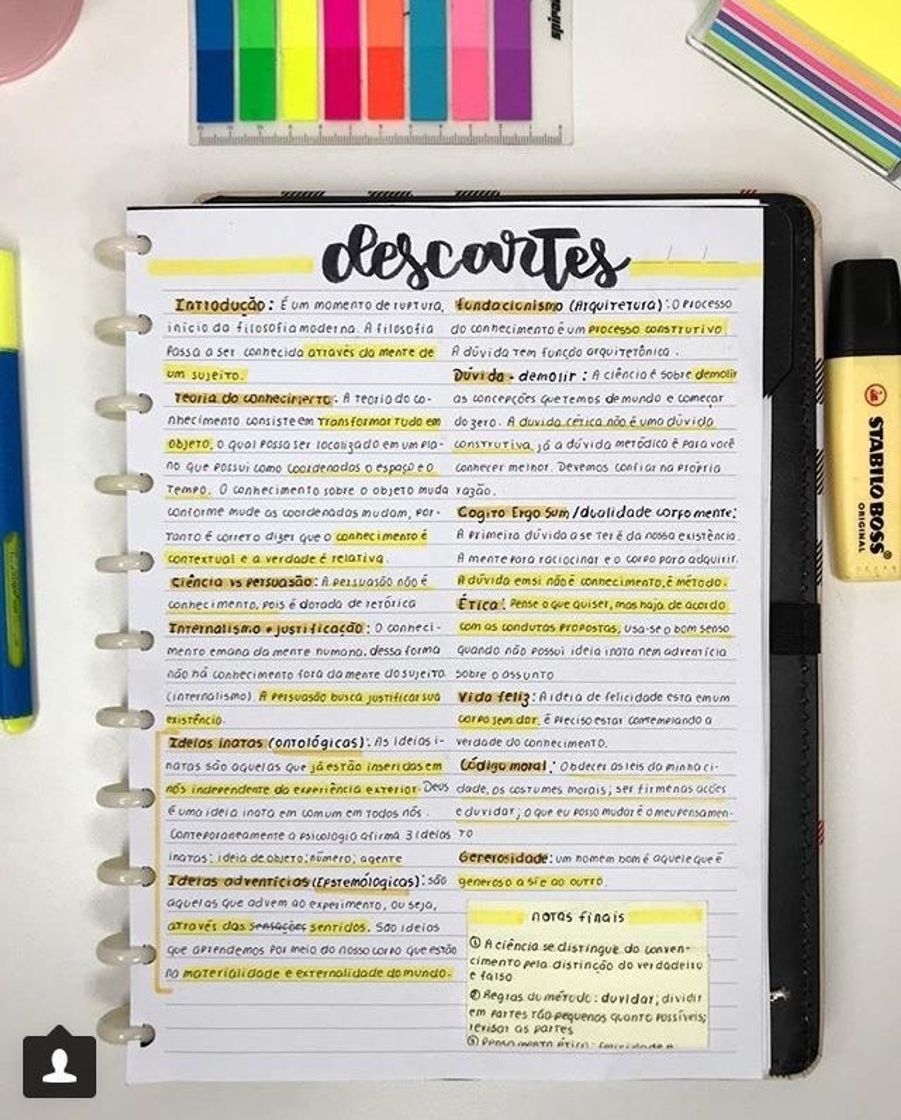 descartes
Introdução: É um momento de ruptura,
início da filosofia moderna. A filosofia
passa a ser conhecida através da mente de
um sujeito.
Teoria do conhecimento: A teoria do co-
nhecimento consiste em transformar tudo em
objeto, o qual possa ser localizado em um pla-
no que possui como coordenadas o espaço e o
tempo. O conhecimento sobre o objeto muda
conforme mude as coordenadas mudam, por-
tanto é correto dizer que o conhecimento é
contextual e a verdade é relativa.
Ciência vs persuasão: A persuasão não é
conhecimento, pois é dotada de retórica
Internalismo e justificação: O conheci-
mento emana da mente humana, dessa forma
não há conhecimento fora da mente do sujeito
(internalismo). A persuasão busca justificar sua
existência.
Ideias inatas (ontológicas): As ideias i-
natas são aquelas que já estão inseridas em
nós independente da experiência exterior. Deus
é uma ideia inata em comum em todos nós.
Contemporaneamente a psicologia afirma 3 ideias
inatas: ideia de objeto; número; agente
Ideias adventícias (Epstemológicas): são
aquelas que advem ao experimento, ou seja,
através das sensações sentidos. São ideias
que aprendemos por meio do nosso corpo que estão
na materialidade e externalidade do mundo.
fundacionismo (Arquitetura): O processo
do conhecimento é um processo construtivo.
A dúvida tem função arquitetônica.
Dúvida - demolir: A ciência é sobre demolir
as concepções que temos de mundo e começar
do zero. A dúvida cética não é uma dúvida
construtiva, já a dúvida metódica é para você
conhecer melhor. Devemos confiar na própria
razão.
Cogito Ergo Sum / dualidade corpo mente:
A primeira dúvida a se ter é da nossa existência.
A mente para raciocinar e o corpo para adquirir.
A dúvida em si não é conhecimento, é método.
Ética: Pense o que quiser, mas haja de acordo
com as condutas propostas, usa-se o bom senso
quando não possui ideia inata nem adventícia
sobre o assunto
Vida feliz: A ideia de felicidade esta em um
corpo sem dor, é preciso estar contemplando a
verdade do conhecimento.
Código moral: Obdecer as leis da minha ci-
dade, os costumes morais; ser firme nas ações
e duvidar; o que eu posso mudar é o meu pensamen-
to
Generosidade: um homem bom é aquele que é
generoso a si e ao outro.
notas finais
① A ciência se distingue do conven-
cimento pela distinção do verdadeiro
e falso
② Regras do método: duvidar; dividir
em partes tão pequenas quanto possíveis;
revisar as partes
③ Pensamento ético: felicidade é
STABILO BOSS
ORIGINAL